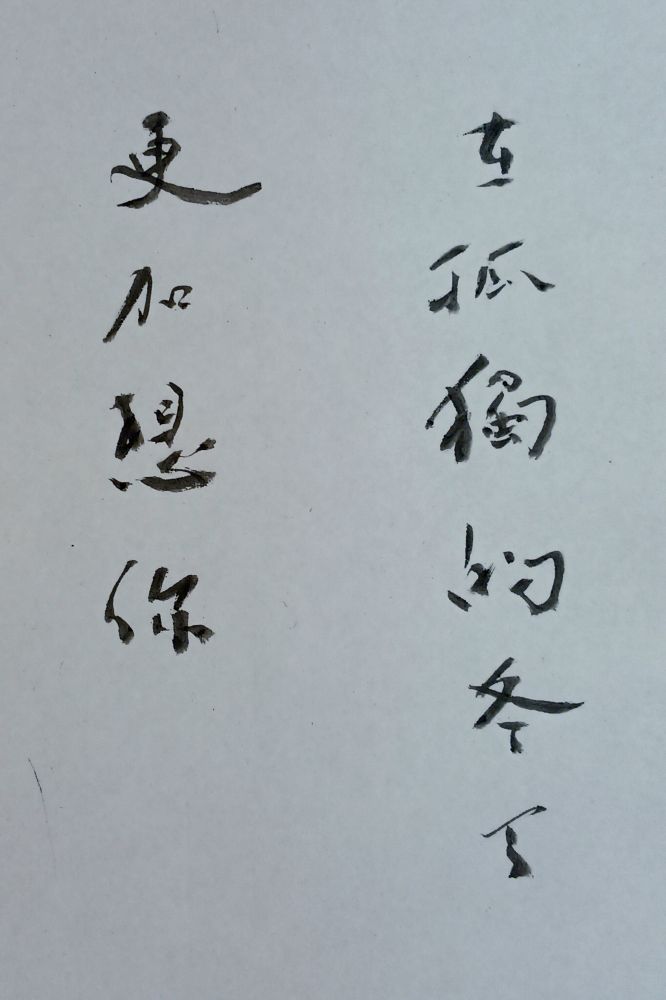 在孤獨的冬天
更加想你